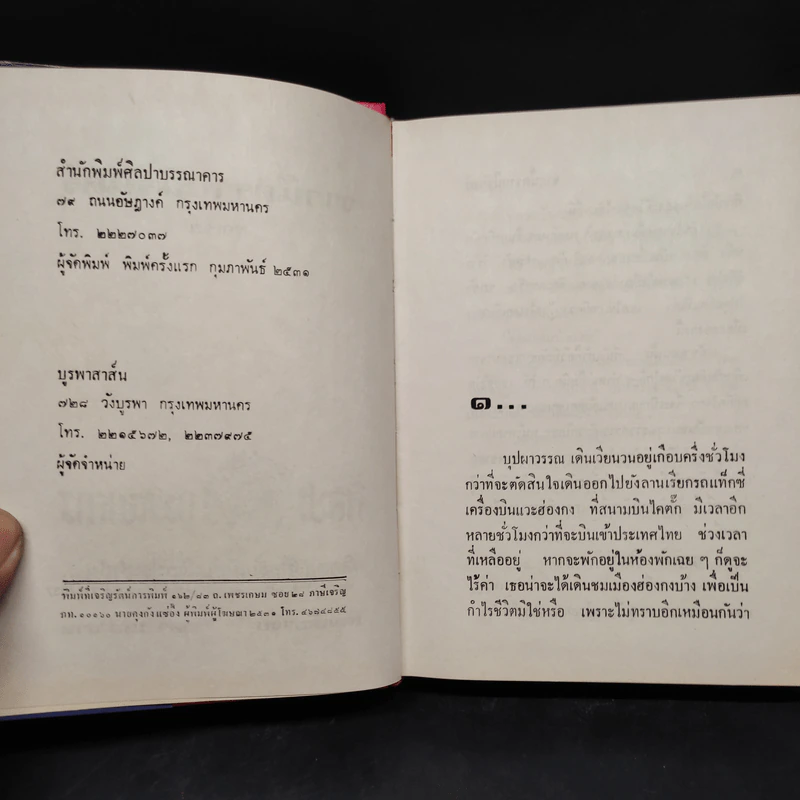 สำนักพิมพ์ศิลปาบรรณาคาร
๗๙ ถนนอัษฎางค์ กรุงเทพมหานคร
โทร. ๒๒๒๗๐๓๗
ผู้จัดพิมพ์ พิมพ์ครั้งแรก กุมภาพันธ์ ๒๕๓๑
บูรพาสาส์น
๗๒๘ วังบูรพา กรุงเทพมหานคร
โทร. ๒๒๑๕๖๗๒, ๒๒๓๗๙๗๕
ผู้จัดจำหน่าย
พิมพ์ที่เจริญรัตน์การพิมพ์ ๑๖๒/๘๓ ถ. เพชรเกษม ซอย ๒๘ ภาษีเจริญ
กท. ๑๐๑๖๐ นายคุงกัง แซ่อึง ผู้พิมพ์ผู้โฆษณา ๒๕๓๑ โทร. ๔๖๗๔๘๕๕
๑...
บุปผาวรรณ เดินเวียนวนอยู่เกือบครึ่งชั่วโมง
กว่าที่จะตัดสินใจเดินออกไปยังลานเรียกรถแท็กซี่
เครื่องบินแวะฮ่องกง ที่สนามบินไคตั๊ก มีเวลาอีก
หลายชั่วโมงกว่าที่จะบินเข้าประเทศไทย ช่วงเวลา
ที่เหลืออยู่ หากจะพักอยู่ในห้องพักเฉย ๆ ก็ดูจะ
ไร้ค่า เธอน่าจะได้เดินชมเมืองฮ่องกงบ้าง เพื่อเป็น
กำไรชีวิตมิใช่หรือ เพราะไม่ทราบอีกเหมือนกันว่า